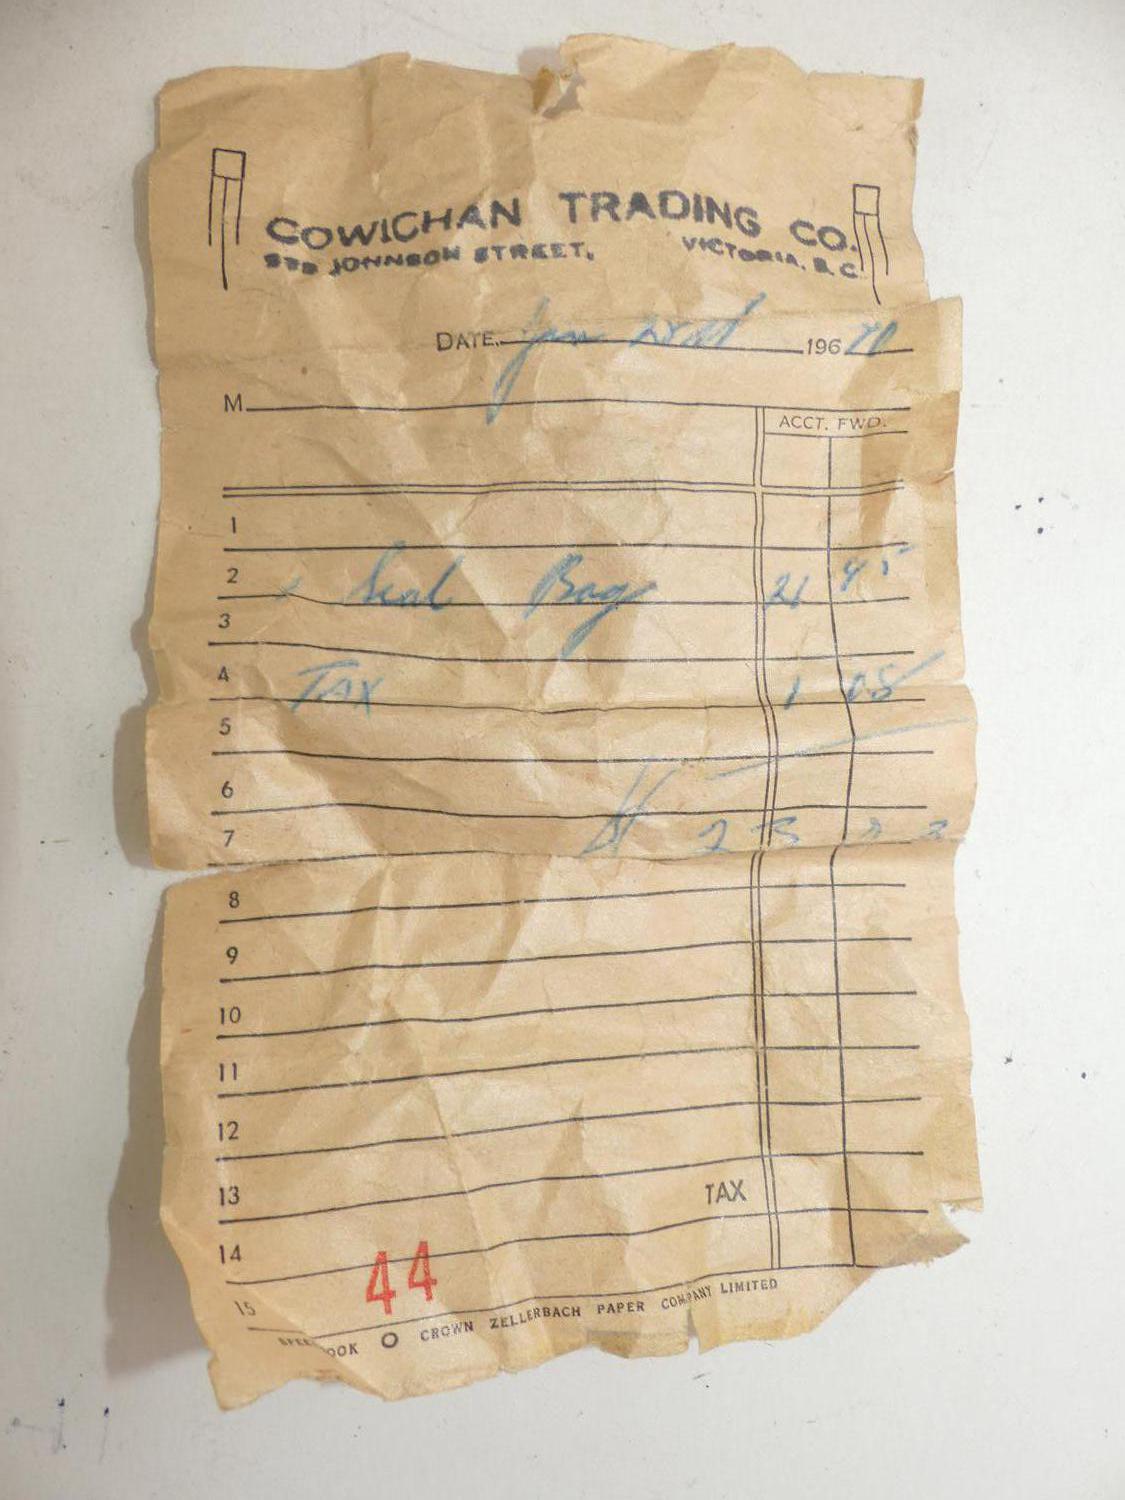 COWICHAN TRADING CO.
JOHNSON STREET, VICTORIA, B.C.
DATE Jan 196 70
M
ACCT. FWD.
1
2 Seal Bag 21 45
3
4 TAX 1 08
5
6
7 23
8
9
10
11
12
13 TAX
14
44
15
CROWN ZELLERBACH PAPER COMPANY LIMITED